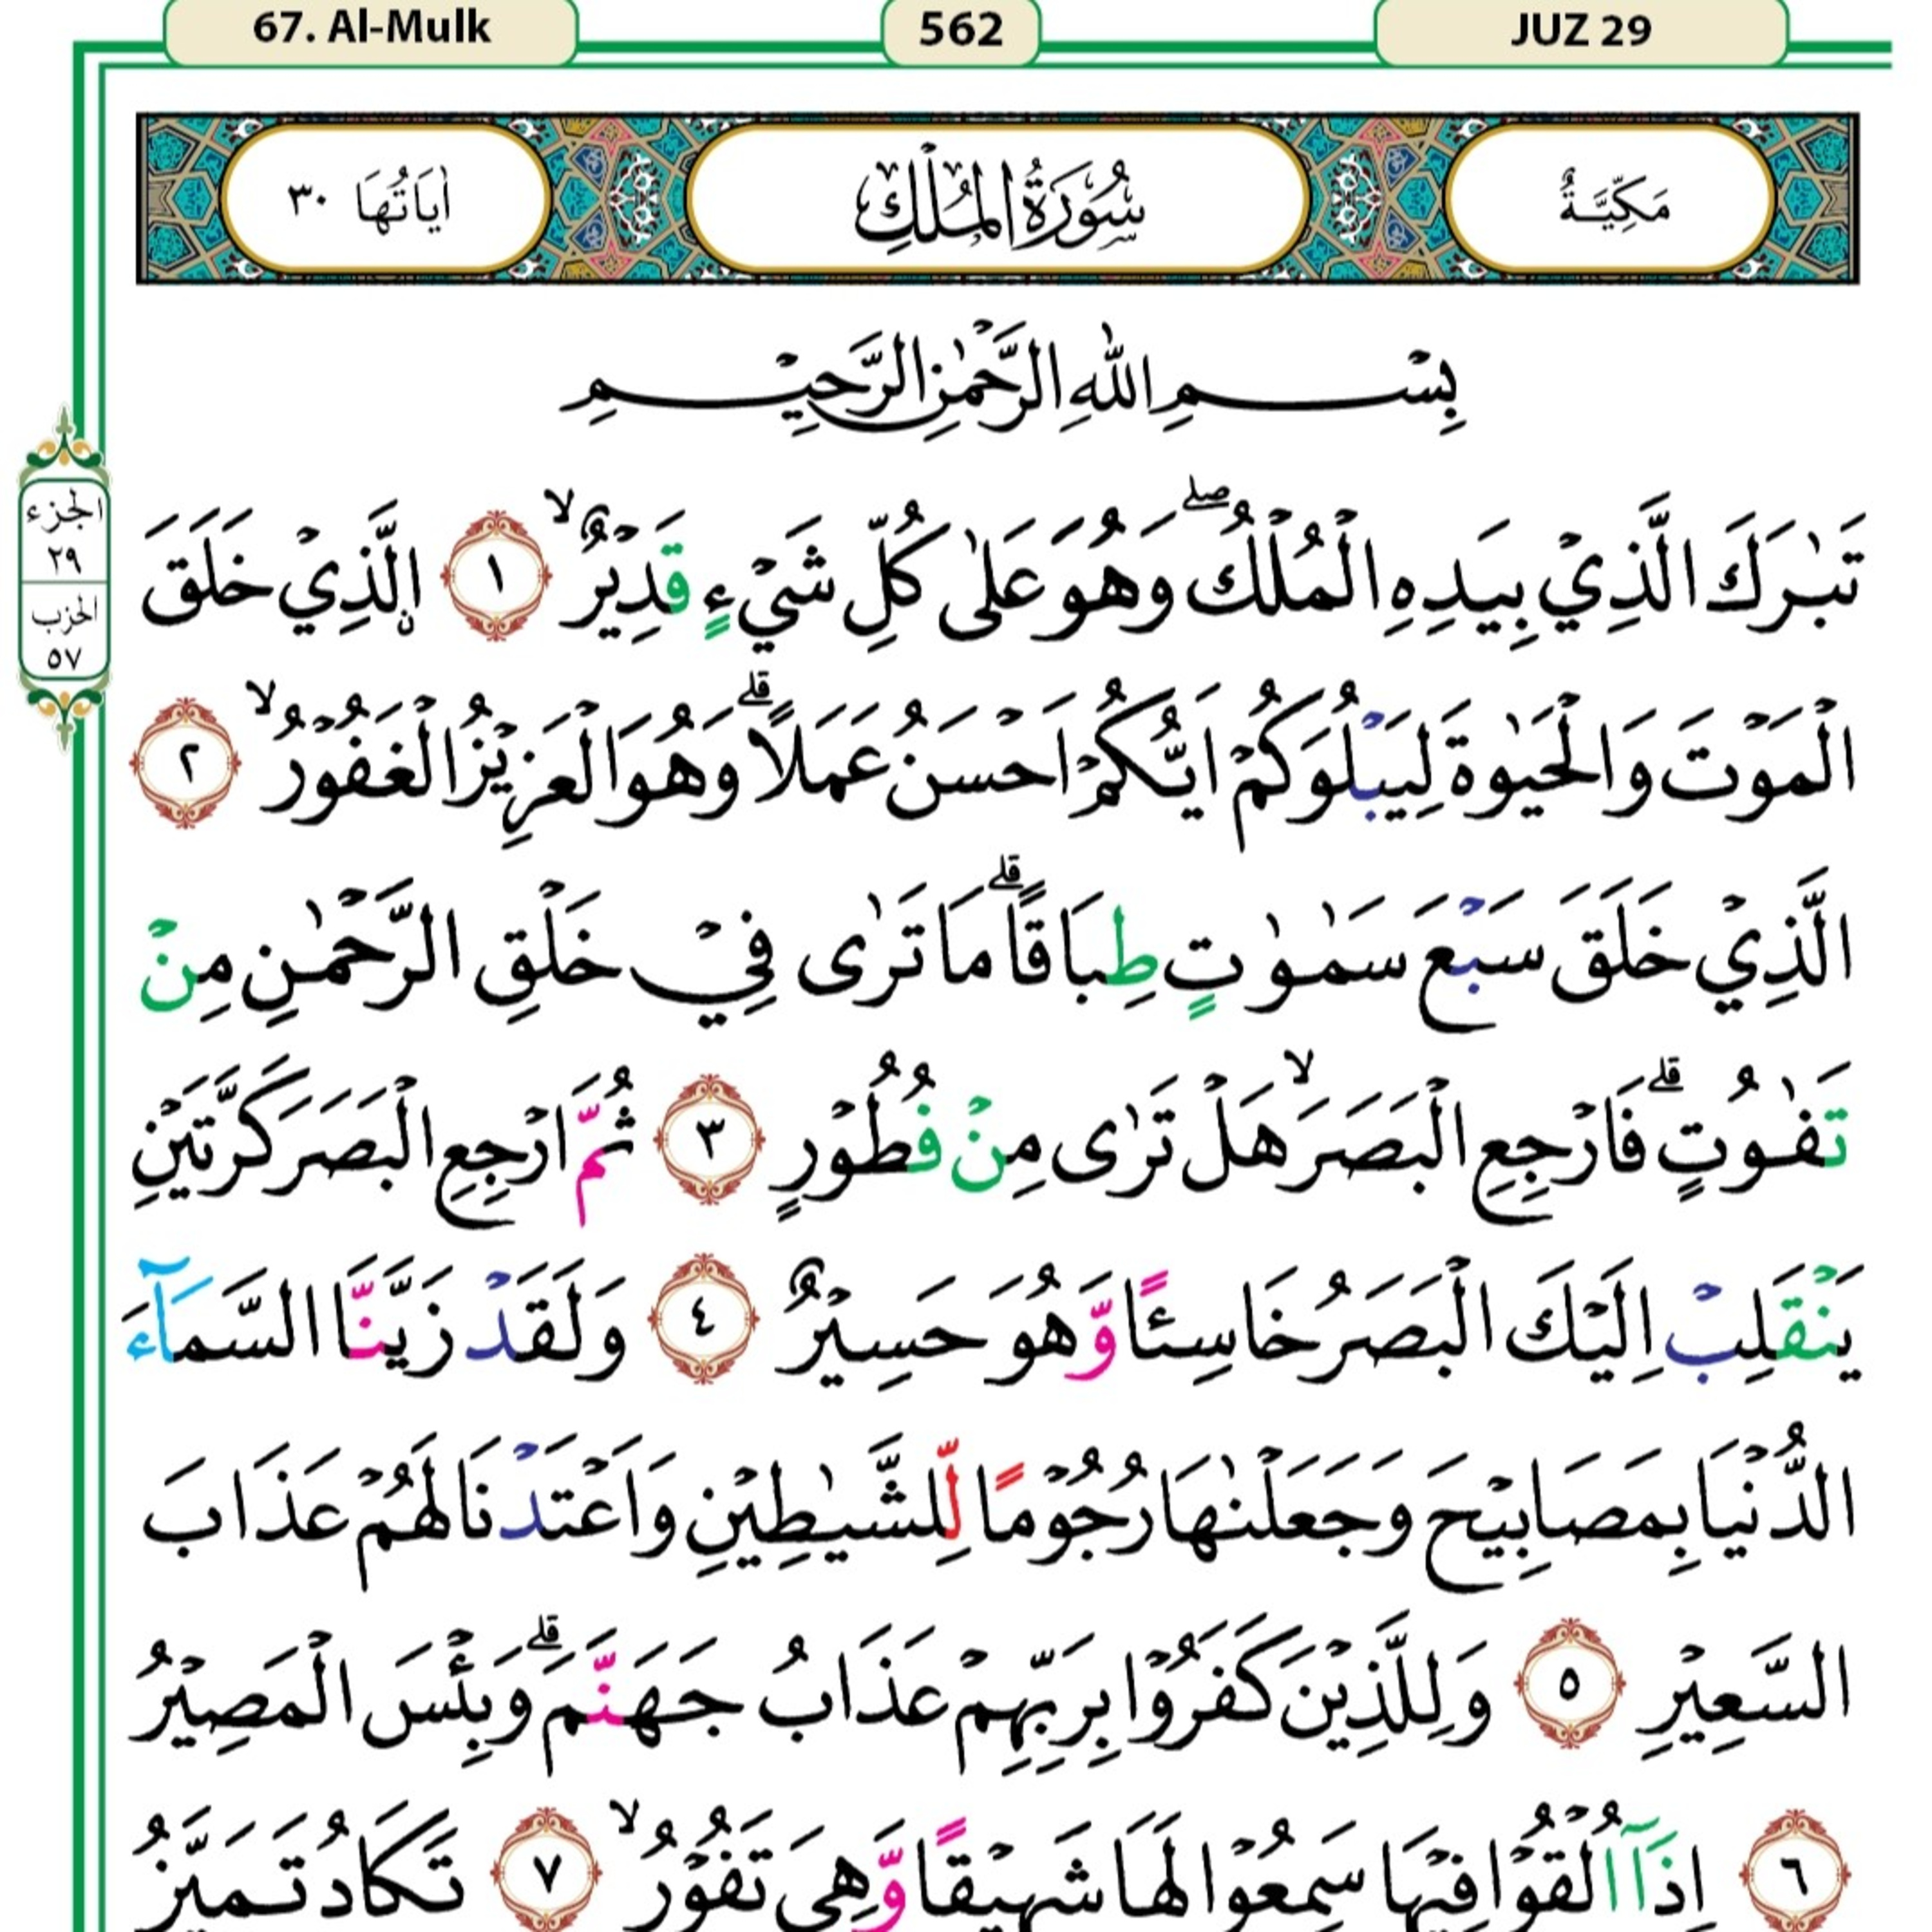 67. Al-Mulk 562 JUZ 29
مَكِّيَّةٌ سُوْرَةُ الْمُلْكِ اٰيَاتُهَا ٣٠
بِسْمِ اللّٰهِ الرَّحْمٰنِ الرَّحِيْمِ
الجزء
٢٩
الحزب
٥٧
تَبٰرَكَ الَّذِيْ بِيَدِهِ الْمُلْكُ ۖ وَهُوَ عَلٰى كُلِّ شَيْءٍ قَدِيْرٌ ۙ ١ ۨالَّذِيْ خَلَقَ
الْمَوْتَ وَالْحَيٰوةَ لِيَبْلُوَكُمْ اَيُّكُمْ اَحْسَنُ عَمَلًا ۗ وَهُوَ الْعَزِيْزُ الْغَفُوْرُ ۙ ٢
الَّذِيْ خَلَقَ سَبْعَ سَمٰوٰتٍ طِبَاقًا ۗ مَا تَرٰى فِيْ خَلْقِ الرَّحْمٰنِ مِنْ
تَفٰوُتٍ ۗ فَارْجِعِ الْبَصَرَ ۙ هَلْ تَرٰى مِنْ فُطُوْرٍ ٣ ثُمَّ ارْجِعِ الْبَصَرَ كَرَّتَيْنِ
يَنْقَلِبْ اِلَيْكَ الْبَصَرُ خَاسِئًا وَّهُوَ حَسِيْرٌ ٤ وَلَقَدْ زَيَّنَّا السَّمَآءَ
الدُّنْيَا بِمَصَابِيْحَ وَجَعَلْنٰهَا رُجُوْمًا لِّلشَّيٰطِيْنِ وَاَعْتَدْنَا لَهُمْ عَذَابَ
السَّعِيْرِ ٥ وَلِلَّذِيْنَ كَفَرُوْا بِرَبِّهِمْ عَذَابُ جَهَنَّمَ ۗ وَبِئْسَ الْمَصِيْرُ
٦ اِذَآ اُلْقُوْا فِيْهَا سَمِعُوْا لَهَا شَهِيْقًا وَّهِيَ تَفُوْرُ ۙ ٧ تَكَادُ تَمَيَّزُ